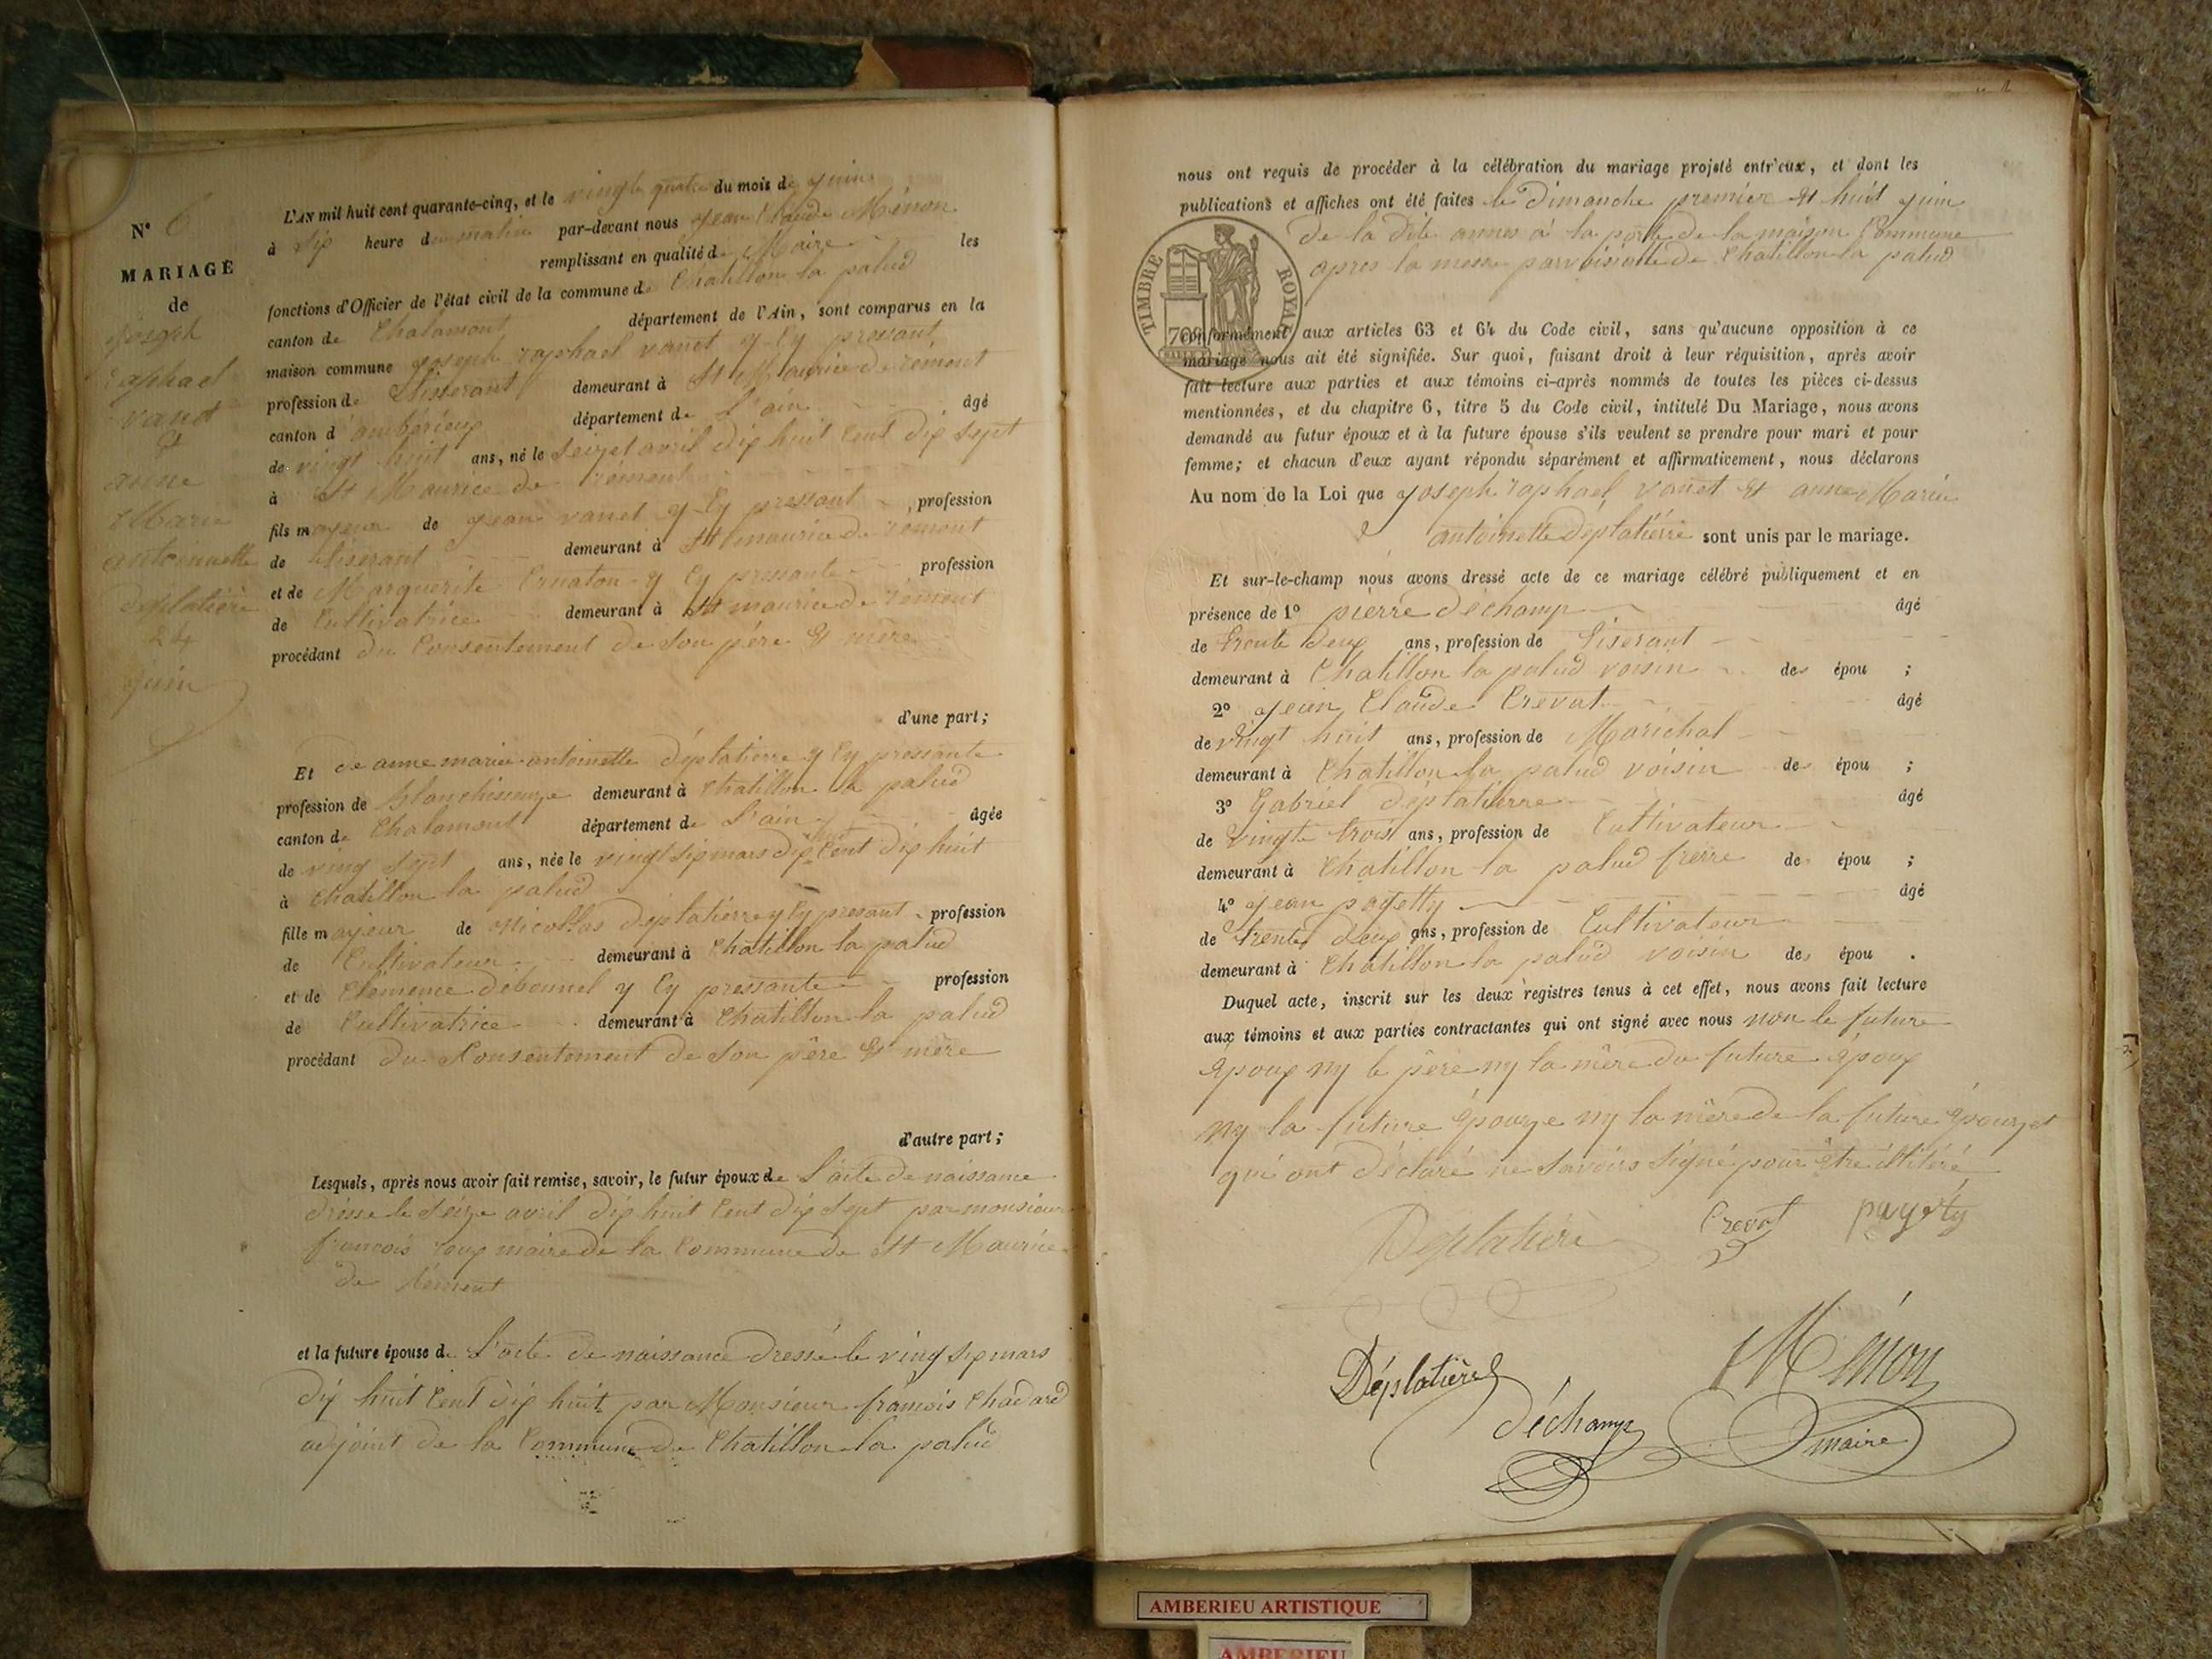 N° 6
MARIAGE
de
joseph
raphael
vanet
et
anne
Marie
antoinette
déplatière
24
juin
L'AN mil huit cent quarante-cinq, et le vingt quatre du mois de juin
à six heure du matin par-devant nous jean Claude Ménon
remplissant en qualité de Maire les
fonctions d'Officier de l'état civil de la commune de Chatillon la palud
canton de Chalamont département de l'Ain, sont comparus en la
maison commune joseph raphael vanet y Cy pressant
profession de tisserant demeurant à St Maurice de rémont
canton d'ambérieux département de L'ain âgé
de vingt huit ans, né le seize avril dix huit Cent dix sept
à St Maurice de rémont
fils mayeur de jean vanet y Cy pressant profession
de tiserant demeurant à St maurice de rémont
et de Marguerite y Cy pressante profession
de Cultivatrice demeurant à St maurice de rémont
procédant du Consentement de son père et mère
d'une part;
Et de anne marie antoinette déplatierre y Cy pressante
profession de blanchisseuze demeurant à Chatillon la palud
canton de Chalamont département de L'ain âgée
de ving sept ans, née le vingt six mars dix huit Cent dix huit
à Chatillon la palud
fille mayeur de nicollas déplatièrre y Cy presant profession
de Cultivateur demeurant à Chatillon la palud
et de Clémence debonnel y Cy pressante profession
de Cultivatrice demeurant à Chatillon la palud
procédant du Consentement de son père et mère
d'autre part;
Lesquels, après nous avoir fait remise, savoir, le futur époux de L'acte de naissance
dressé le seize avril dix huit Cent dix sept par monsieur
francois roux maire de la Commune de St Maurice
de rémont
et la future épouse de L'acte de naissance dressé le ving six mars
dix huit Cent dix huit par Monsieur francois Chadard
adjoint de la Commune de Chatillon la palud
nous ont requis de procéder à la célébration du mariage projeté entr'eux, et dont les
publications et affiches ont été faites le Dimanche premier et huit juin
de la dite annes à la porte de la maison Commune
apres la messe parroisialle de Chatillon la palud
TIMBRE ROYAL
70c
conformément aux articles 63 et 64 du Code civil, sans qu'aucune opposition à ce
mariage nous ait été signifiée. Sur quoi, faisant droit à leur réquisition, après avoir
fait lecture aux parties et aux témoins ci-après nommés de toutes les pièces ci-dessus
mentionnées, et du chapitre 6, titre 5 du Code civil, intitulé Du Mariage, nous avons
demandé au futur époux et à la future épouse s'ils veulent se prendre pour mari et pour
femme; et chacun d'eux ayant répondu séparément et affirmativement, nous déclarons
Au nom de la Loi que joseph raphael vanet et anne Marie
antoinette déplatièrre sont unis par le mariage.
Et sur-le-champ nous avons dressé acte de ce mariage célébré publiquement et en
présence de 1° pierre déchamp âgé
de trente deux ans, profession de tiserant
demeurant à Chatillon la palud voisin des épou ;
2° jean Claude Crevat âgé
de vingt huit ans, profession de Marichal
demeurant à Chatillon la palud voisin des épou ;
3° Gabriel déplatièrre âgé
de vingte trois ans, profession de Cultivateur
demeurant à Chatillon la palud frerre de épou ;
4° jean payetty âgé
de trente deux ans, profession de Cultivateur
demeurant à Chatillon la palud voisin des épou .
Duquel acte, inscrit sur les deux registres tenus à cet effet, nous avons fait lecture
aux témoins et aux parties contractantes qui ont signé avec nous non le future
époux ny le père ny la mère du future époux
ny la future épouze ny la mère de la future épouze
qui ont déclaré ne savoirs signé pour être illitéré
Déplatière Crevat payety
Déplatière Ménon
déchamp maire
AMBERIEU ARTISTIQUE
AMBERIEU